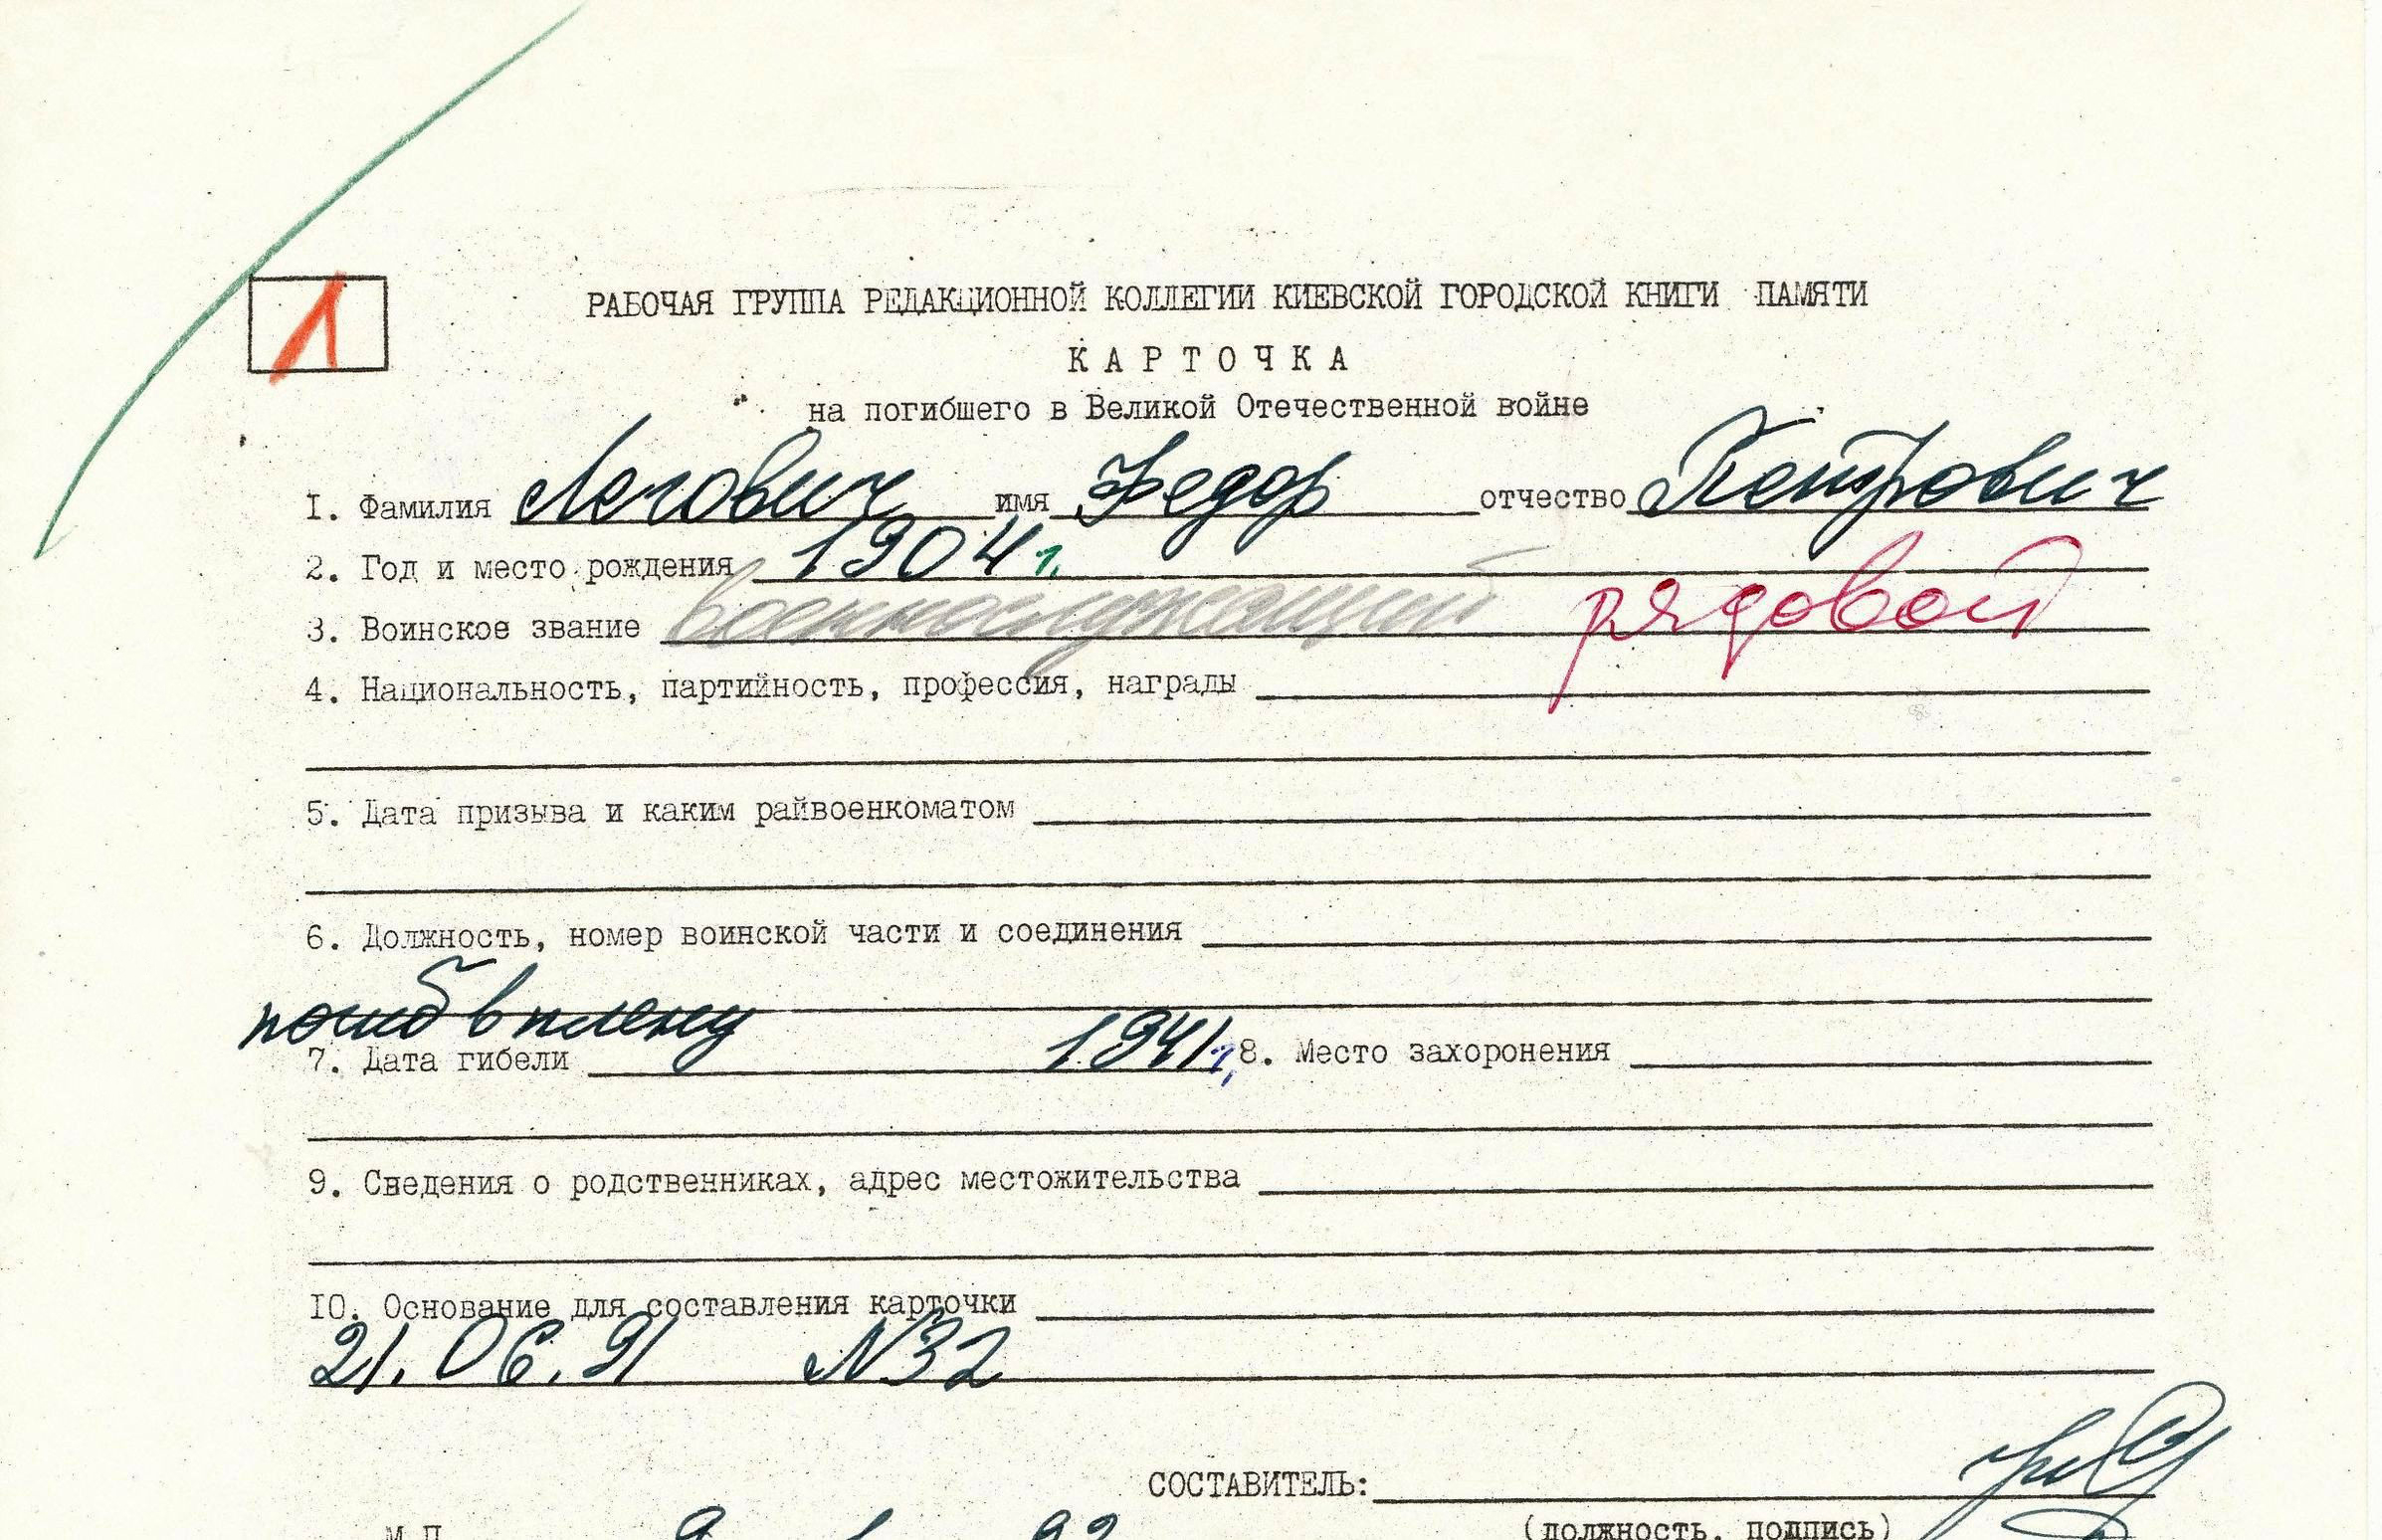 1
РАБОЧАЯ ГРУППА РЕДАКЦИОННОЙ КОЛЛЕГИИ КИЕВСКОЙ ГОРОДСКОЙ КНИГИ ПАМЯТИ
КАРТОЧКА
на погибшего в Великой Отечественной войне
I. Фамилия Легович имя Федор отчество Петрович
2. Год и место рождения 1904 г.
3. Воинское звание военнослужащий рядовой
4. Национальность, партийность, профессия, награды
5. Дата призыва и каким райвоенкоматом
6. Должность, номер воинской части и соединения
погиб в плену
7. Дата гибели 1941 г. 8. Место захоронения
9. Сведения о родственниках, адрес местожительства
IO. Основание для составления карточки
21.06.91 N32
СОСТАВИТЕЛЬ:
М.П.
(должность, подпись)